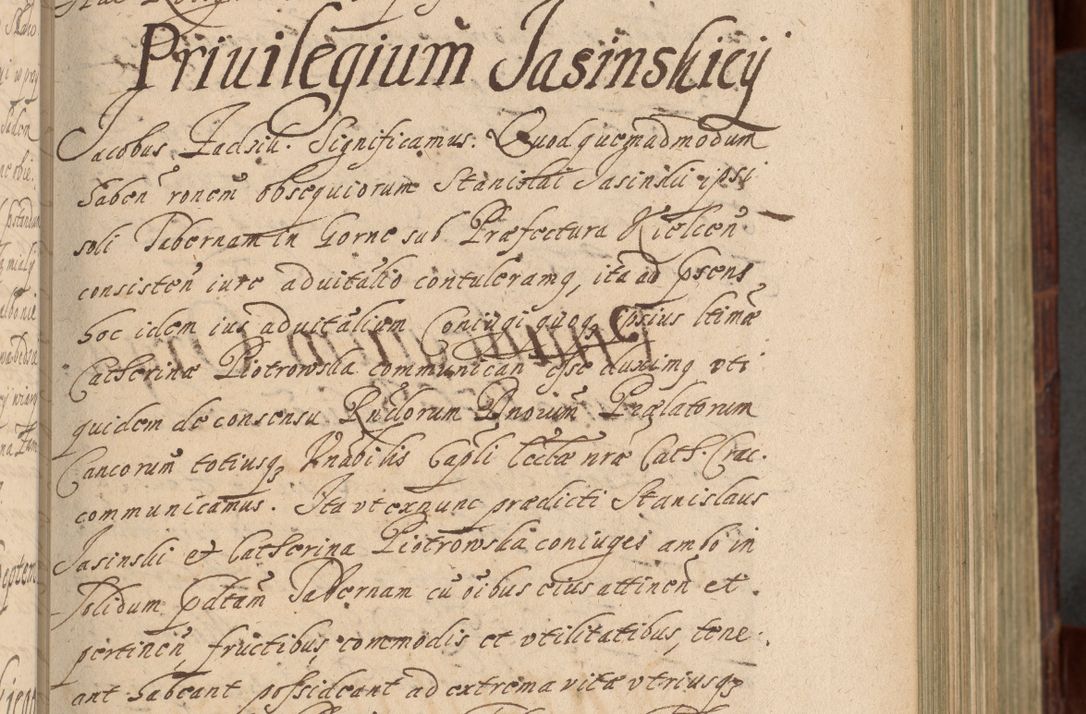 Priuilegium Jasinskicÿ
Jacobus Zadsik. Significamus. Quod quemadmodum
haben̄ ronem̄ obsequiorum Stanislai Jasinskii ipsi
soli Tabernam in Gorne sub Præfectura Kielcen̄
consisten̄ iure aduitalio contuleramq, ita ad psens
hoc idem ius aduitalium Coniugi quoq ipsius ltimæ
Catherinæ Piotrowska communican esse duximq vti
quidem de consensu Rndorum Dnorum Prælatorum
Cancorum totiusq Vnabilis Capli Ecclæ nræ Cath. Crac.
communicamus. Ita vt exnunc prædicti Stanislaus
Jasinski et Catherina Piotrowska coniuges ambo in
solidum pdtam Tabernam cū oibus eius attinen̄ et
pertinen̄, fructibus, commodis et vtilitatibus, tene
ant habeant possideant ad extrema vitæ vtriusq